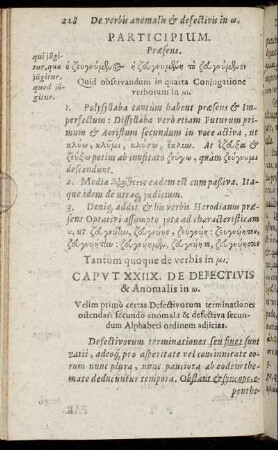 228 De verbis anomalis & defectivis in ω.
PARTICIPIUM.
Præsens.
qui jũgi-
tur, quæ
jũgitur,
quod jũ-
gitur.
ὁ ζευγνύμενος ἡ ζευγνυμένη τὸ ζευγνύμενον
Quid observandum in quarta Conjugatione
verborum in μι.
1. Polysyllaba tantùm habent præsens & Im-
perfectum: Dissyllaba verò etiam Futurum primum
& Aoristum secundum in voce activa, ut
κλύω, κλῦμι, κλύσω, ἔκλων. At ἔζευξα &
ζεύξω potius ab inusitato ζεύγω, quàm ζεύγνυμι
descendunt.
2. Media eadem est cum passiva. Ita-
que idem de utraq; judicium.
3. Deniq; addit & his verbis Herodianus præ-
sens Optativi assumpto jota ad characteristicam
υ, ut
Tantùm quoque de verbis in μι.
CAPUT XXIIX. DE DEFECTIVIS
& Anomalis in ω.
Velim primò certas Defectivorum terminationes
ostendas: secundò anomala & defectiva secun-
dum Alphabeti ordinem adjicias.
Defectivorum terminationes seu fines sunt
varii, adeoq; pro asperitate vel concinnitate eo-
rum nunc plura, nunc pauciora ab eodem the-
mate deducuntur tempora. Obstant & syncope, e-
penthe-